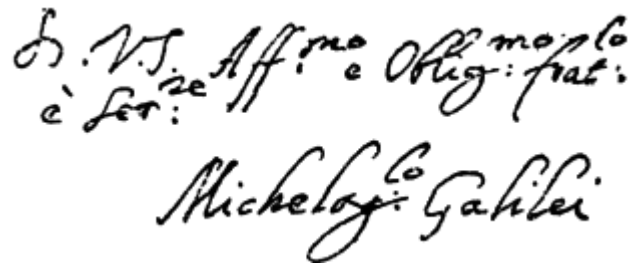 D. V. S. Aff.mo e Oblig:mo frat:lo
è Ser:re
Michelag:lo Galilei